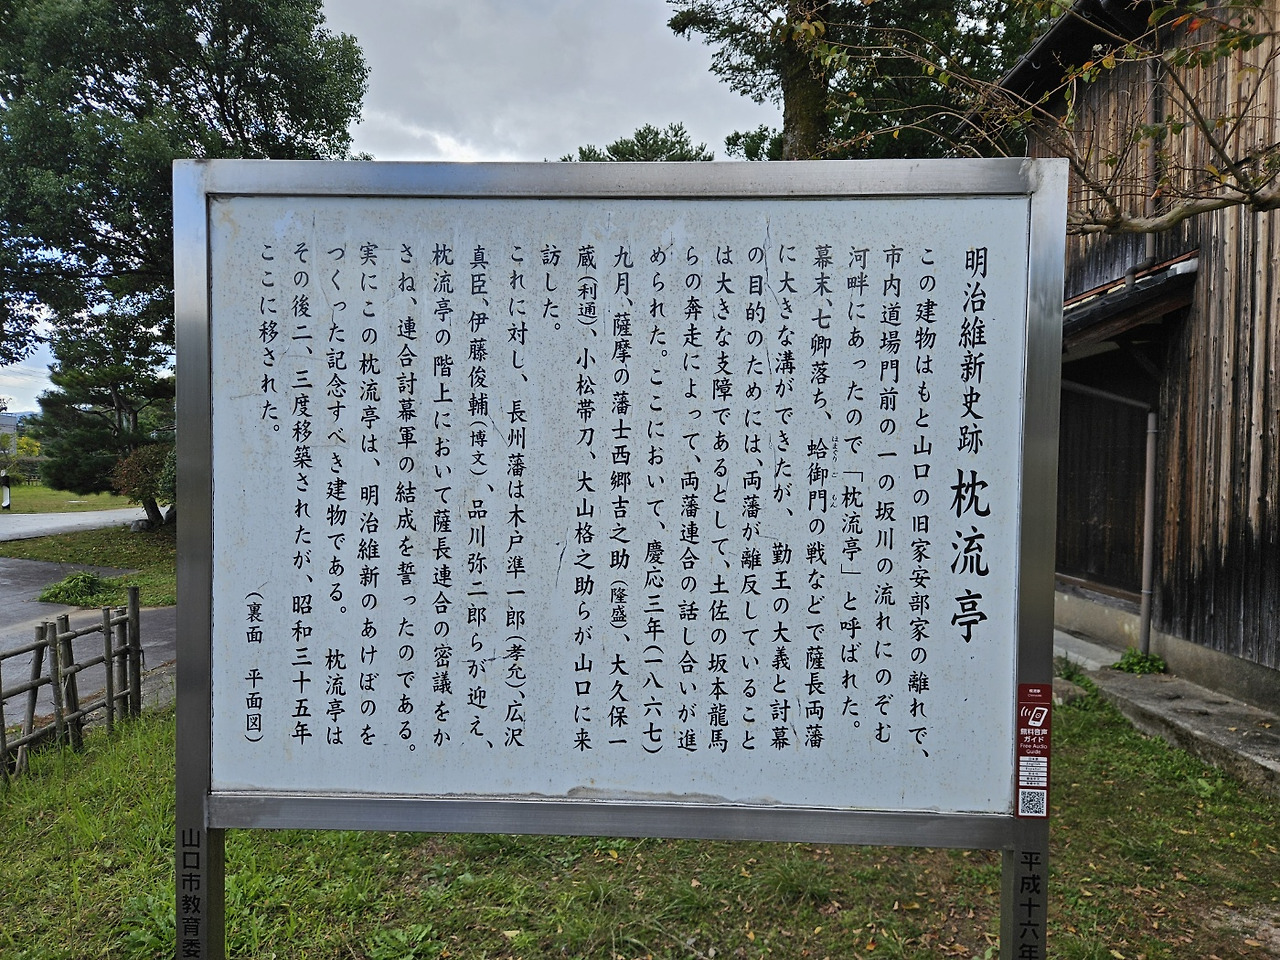 明治維新史跡 枕流亭
この建物はもと山口の旧家安部家の離れで、
市内道場門前の一の坂川の流れにのぞむ
河畔にあったので「枕流亭」と呼ばれた。
幕末、七卿落ち、蛤御門の戦などで薩長両藩
はまぐりごもん
に大きな溝ができたが、勤王の大義と討幕
の目的のためには、両藩が離反していること
は大きな支障であるとして、土佐の坂本龍馬
らの奔走によって、両藩連合の話し合いが進
められた。ここにおいて、慶応三年(一八六七)
九月、薩摩の藩士西郷吉之助(隆盛)、大久保一
蔵(利通)、小松帯刀、大山格之助らが山口に来
訪した。
これに対し、長州藩は木戸準一郎(孝允)、広沢
真臣、伊藤俊輔(博文)、品川弥二郎らが迎え、
枕流亭の階上において薩長連合の密議をか
さね、連合討幕軍の結成を誓ったのである。
実にこの枕流亭は、明治維新のあけぼのを
つくった記念すべき建物である。 枕流亭は
その後二、三度移築されたが、昭和三十五年
ここに移された。
(裏面 平面図)
無料音声
ガイド
Free Audio
Guide
平成十六年
山口市教育委